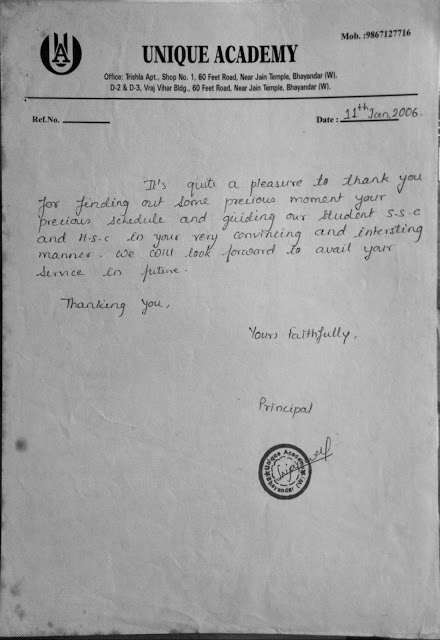 Mob. :9867127716
UNIQUE ACADEMY
Office: Trishla Apt., Shop No. 1, 60 Feet Road, Near Jain Temple, Bhayandar (W).
D-2 & D-3, Vraj Vihar Bldg., 60 Feet Road, Near Jain Temple, Bhayandar (W).
Ref.No.
Date : 11th Jan, 2006.
It's quite a pleasure to thank you
for finding out some precious moment your
precious schedule and guiding our student S.S.C
and H.S.C in your very convincing and intersting
manner. We will look forward to avail your
service in future.
Thanking You,
Yours Faithfully,
Principal
Unique Academy
Bhayandar (W)